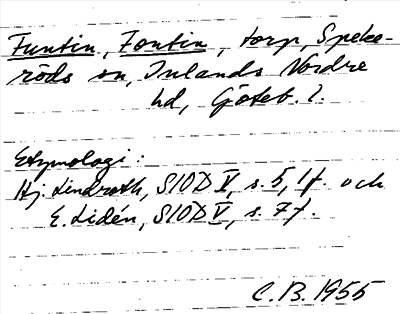 Funtin, Fontin, torp, Speke-
röds sn, Inlands Nordre
hd, Göteb. l.
Etymologi:
Hj. Lindroth, SIOD V, s. 5, 1f. och
E. Lidén, SIOD V, s. 7f.
C.B. 1955